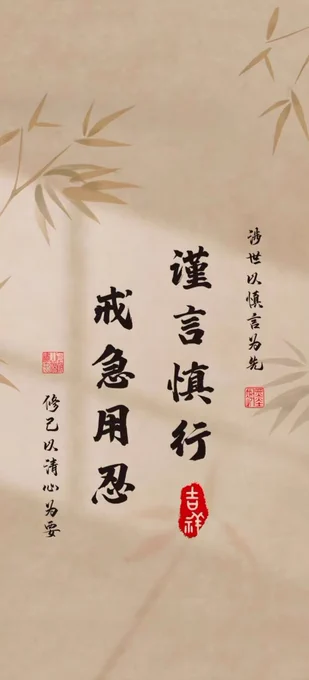 涉世以慎言为先
谨言慎行
吉祥
戒急用忍
修己以清心为要